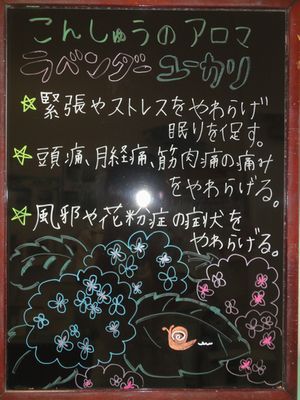 こんしゅうのアロマ
ラベンダー ユーカリ
☆緊張やストレスをやわらげ
眠りを促す。
☆頭痛、月経痛、筋肉痛の痛み
をやわらげる。
☆風邪や花粉症の症状を
やわらげる。